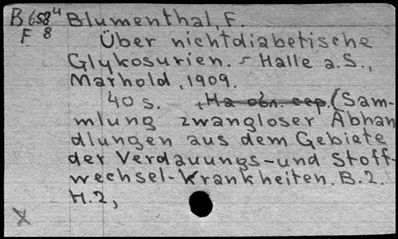 B 658⁴ Blumenthal, F.
F 8
Über nichtdiabetische
Glykosurien. - Halle a.S.,
Marhold, 1909.
40 s. На обл. сер. (Sam-
mlung zwangloser Abhan
dlungen aus dem Gebiete
der Verdauungs- und Stoff-
wechsel-Krankheiten. B.2.
H.2,